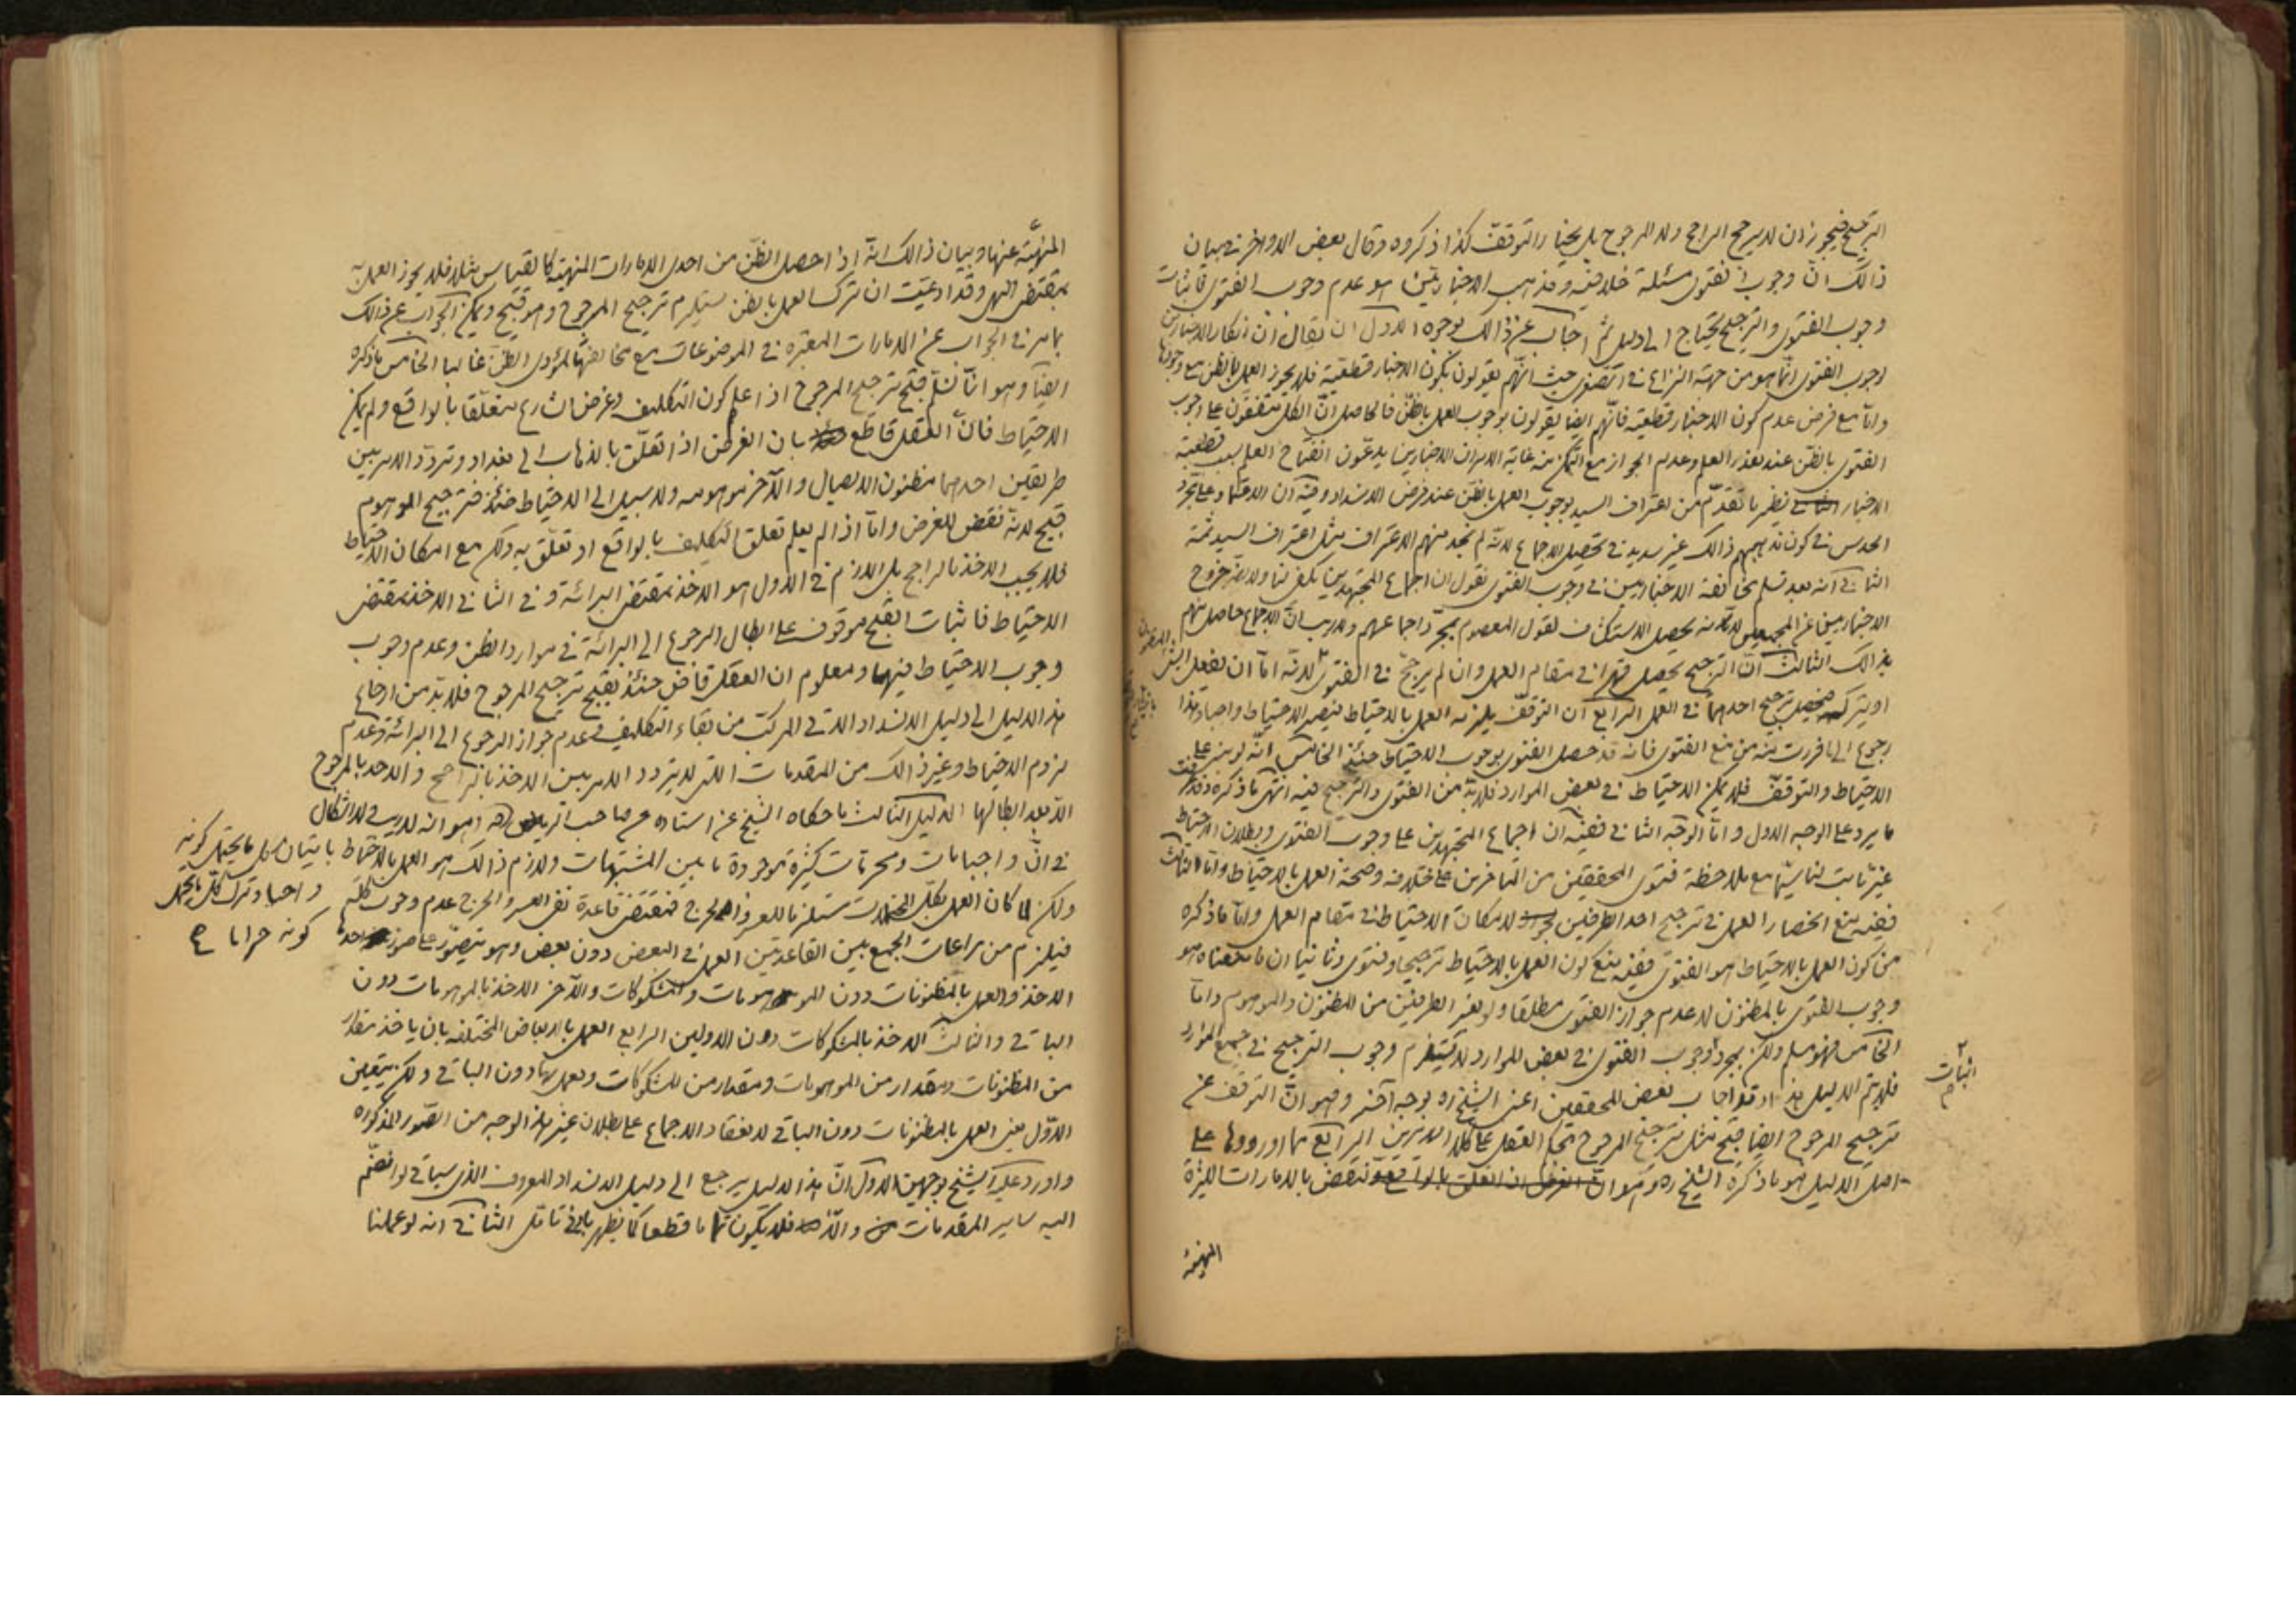 الترجيح فيجوز ان لا يرجح الراجح ولا المرجوح بل يختار التوقف كذا ذكروه وقال بعض الاواخر في بيان
ذالك ان وجوب الفتوى مسئلة خلافية ومذهب الاخباريين هو عدم وجوب الفتوى فاثبات
وجوب الفتوى والترجيح يحتاج الى دليل ثم اجاب عن ذالك بوجوه الاول ان يقال ان انكار الاخباريين
وجوب الفتوى انما هو من جهة النزاع في الصغرى حيث انهم يقولون بكون الاخبار قطعية فلا يجوز العمل بالظن مع وجودها
واما مع فرض عدم كون الاخبار قطعية فانهم ايضا يقولون بوجوب العمل بالظن فالحاصل ان الكل متفقون على وجوب
الفتوى بالظن عند تعذر العلم وعدم الجواز مع التمكن منه غاية الامر ان الاخباريين يدعون انفتاح العلم بسبب قطعية
الاخبار نظير ما تقدم من اعتراف السيد بوجوب العمل بالظن عند فرض الانسداد وفيه ان الاعتماد على مجرد
الحدس في كون مذهبهم ذالك غير سديد في تحصيل الاجماع لانه لم نجد منهم الاعتراف مثل اعتراف السيد ثمة
الثاني انه بعد تسليم مخالفة الاخباريين في وجوب الفتوى نقول ان اجماع المجتهدين يكفي لنا ولا يضر خروج
الاخباريين عن المجمعين لانه يحصل الاستكشاف لقول المعصوم بمجرد اجماعهم ولا ريب ان الاجماع حاصل منهم
بذالك الثالث ان الترجيح يحصل قهرا في مقام العمل وان لم يرجح في الفتوى لانه اما ان يفعل الشيء
او يتركه فيحصل ترجيح احدهما في العمل الرابع ان التوقف يلزمه العمل بالاحتياط فيصير الاحتياط واجبا وهذا
رجوع الى ما فررت منه من منع الفتوى فانه قد حصل الفتوى بوجوب الاحتياط حينئذ الخامس انه لو بنى على
الاحتياط والتوقف فلا يمكن الاحتياط في بعض الموارد فلا بد من الفتوى والترجيح فيه انتهى ما ذكره وقد عرفت
ما يرد على الوجه الاول واما الوجه الثاني ففيه ان اجماع المجتهدين على وجوب الفتوى وبطلان الاحتياط
غير ثابت لنا سيما مع ملاحظة فتوى المحققين من المتأخرين على خلافه وصحة العمل بالاحتياط واما الثالث
ففيه منع انحصار العمل في ترجيح احد الطرفين لامكان الاحتياط في مقام العمل واما ما ذكره
من كون العمل بالاحتياط هو الفتوى ففيه منع كون العمل بالاحتياط ترجيحا وفتوى وثانيا ان ما منعناه هو
وجوب الفتوى بالمظنون لا عدم جواز الفتوى مطلقا ولو بغير الطرفين من المظنون والموهوم واما
الخامس فهو مسلم ولكن مجرد وجوب الفتوى في بعض الموارد لا يستلزم وجوب الترجيح في جميع الموارد
فلا يتم الدليل وقد اجاب بعض المحققين اعني الشيخ ره بوجه آخر وهو ان التوقف عن
ترجيح المرجوح ايضا قبيح مثل ترجيح المرجوح بحكم العقل الرابع مما اوردوها على
اصل الدليل هو ما ذكره الشيخ ره وهو ان الغرض ان تعلق بالواقع نقض بالامارات الكثيرة
اثبات
المنهية
المنهية عنها وبيان ذالك انه اذا حصل الظن من احدى الامارات المنهية كالقياس مثلا فلا يجوز العمل به
بمقتضى النهي وقد ادعيت ان ترك العمل بالظن يستلزم ترجيح المرجوح وهو قبيح ويمكن الجواب عن ذالك
بما مر في الجواب عن الامارات المعتبرة في الموضوعات مع مخالفتها لمؤدى الظن غالبا الخامس ما ذكره
ايضا وهو انا نسلم قبح ترجيح المرجوح اذا علم كون التكليف وغرض الشارع متعلقا بالواقع ولم يمكن
الاحتياط فان العقل قاطع بان الغرض اذا تعلق بالذهاب الى بغداد وتردد الامر بين
طريقين احدهما مظنون الايصال والآخر موهومه ولا سبيل الى الاحتياط حينئذ فترجيح الموهوم
قبيح لانه نقض للغرض واما اذا لم يعلم تعلق التكليف بالواقع او تعلق به ولكن مع امكان الاحتياط
فلا يجب الاخذ بالراجح بل اللازم في الاول هو الاخذ بمقتضى البرائة وفي الثاني الاخذ بمقتضى
الاحتياط فاثبات القبح موقوف على ابطال الرجوع الى البرائة في موارد الظن وعدم وجوب
وجوب الاحتياط فيها ومعلوم ان العقل قاض حينئذ بقبح ترجيح المرجوح فلا بد من ارجاع
هذا الدليل الى دليل الانسداد الآتي المركب من بقاء التكليف وعدم جواز الرجوع الى البرائة وعدم
لزوم الاحتياط وغير ذالك من المقدمات التي لا يتردد الامر بين الاخذ بالراجح والاخذ بالمرجوح
الا بعد ابطالها الدليل الثالث ما حكاه الشيخ عن استاده عن صاحب الرياض ره وهو انه لا ريب ولا اشكال
في ان واجبات ومحرمات كثيرة موجودة ما بين المشتبهات ولازم ذالك هو العمل بالاحتياط باتيان كل ما يحتمل كونه
واجبا وترك كل ما يحتمل
كونه حراما
ولكن لما كان العمل بكل المحتملات مستلزما للعسر والحرج فمقتضى قاعدة نفي العسر والحرج عدم وجوب كله
فيلزم من مراعات الجمع بين القاعدتين العمل في البعض دون بعض وهو يتصور على صور احدها
الاخذ والعمل بالمظنونات دون الموهومات والمشكوكات والآخر الاخذ بالموهومات دون
الباقي والثالث الاخذ بالمشكوكات دون الاولين الرابع العمل بالابعاض المختلفة بان ياخذ مقدار
من المظنونات ومقدار من الموهومات ومقدار من المشكوكات ويعمل بها دون الباقي ولكن يتعين
الاول يعني العمل بالمظنونات دون الباقي لانعقاد الاجماع على بطلان غير هذا الوجه من الصور المذكورة
واورد عليه الشيخ بوجهين الاول ان هذا الدليل يرجع الى دليل الانسداد المعروف الذي سيأتي لو انضم
اليه ساير المقدمات والا فلا يكون تماما قطعا كما يظهر بادنى تامل الثاني انه لو عملنا